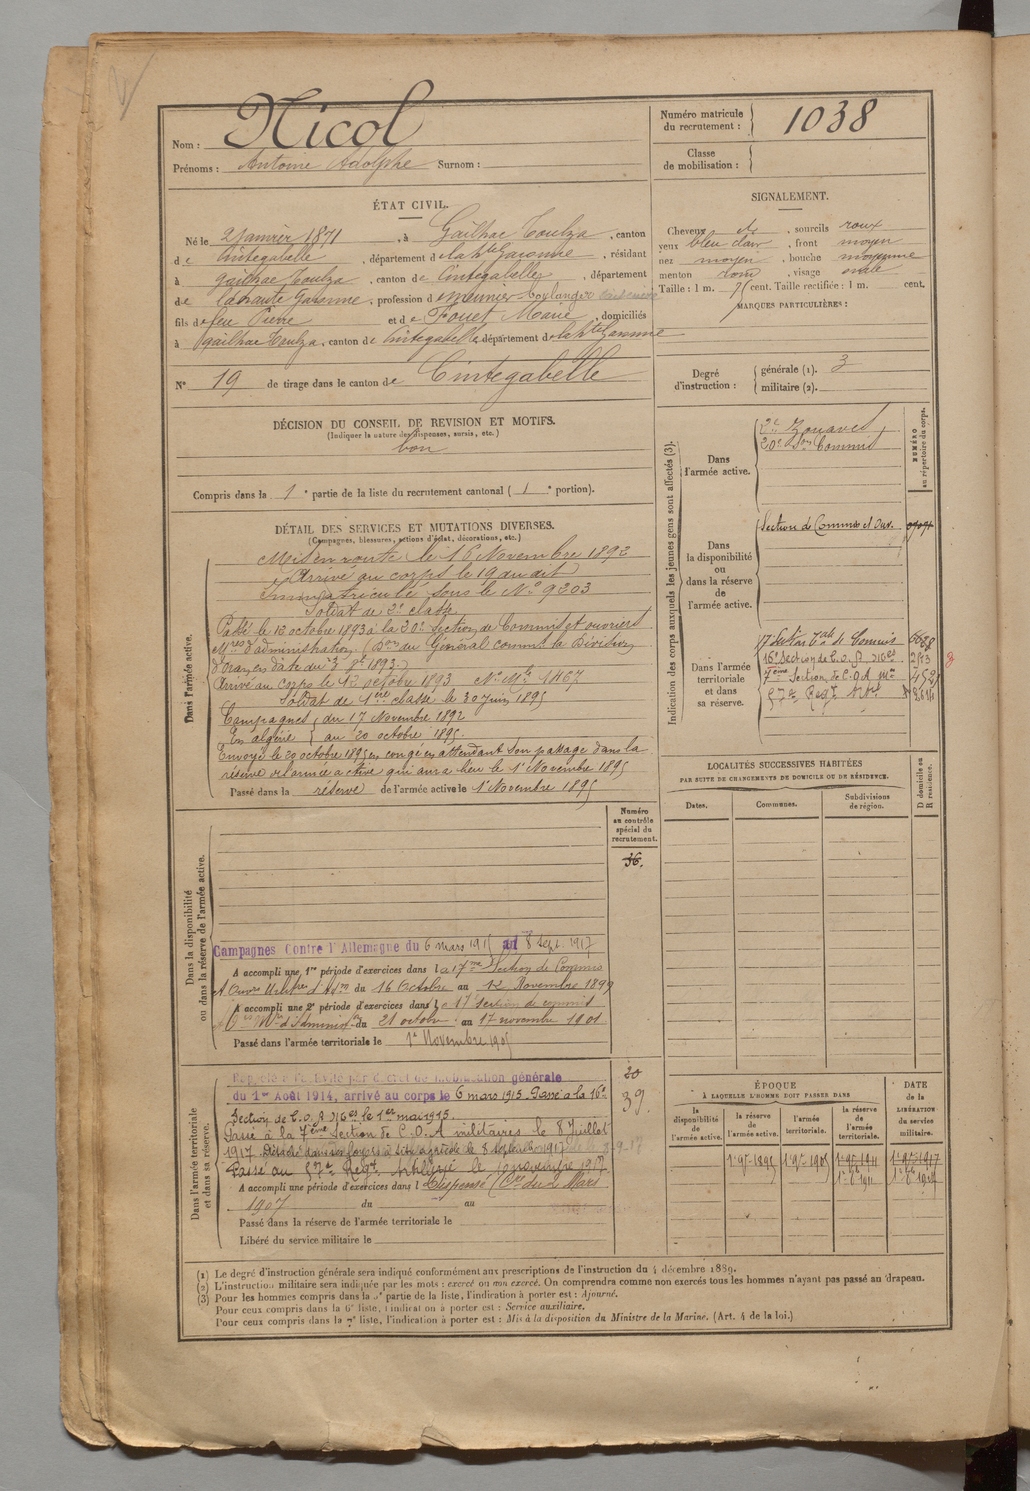 Nom : Nicol
Prénoms : Antoine Adolphe Surnom :
Numéro matricule du recrutement : 1038
Classe de mobilisation :
ÉTAT CIVIL.
Né le 2 Janvier 1871, à Gailhac Toulza, canton
de Cintegabelle, département de la Hte Garonne, résidant
à Gailhac Toulza, canton de Cintegabelle, département
de la haute Garonne, profession de meunier
fils de feu Pierre et de Fouet Marie, domiciliés
à Gailhac Toulza, canton de Cintegabelle, département de la Hte Garonne
N° 19 de tirage dans le canton de Cintegabelle
SIGNALEMENT.
Cheveux do, sourcils roux
yeux bleu clair, front moyen
nez moyen, bouche moyenne
menton rond, visage ovale
Taille : 1 m. cent. Taille rectifiée : 1 m. cent.
MARQUES PARTICULIÈRES :
Degré d'instruction : générale (1). 3
militaire (2).
DÉCISION DU CONSEIL DE REVISION ET MOTIFS.
(Indiquer la nature des dispenses, sursis, etc.)
bon
Compris dans la 1e partie de la liste du recrutement cantonal ( 1e portion).
DÉTAIL DES SERVICES ET MUTATIONS DIVERSES.
(Campagnes, blessures, actions d'éclat, décorations, etc.)
Dans l'armée active.
Mis en route le 16 Novembre 1892
Arrivé au corps le 19 du dit
Immatriculé sous le No 9203
Soldat de 2e classe
Passé le 12 octobre 1893 à la 20e Section de Commis et ouvriers
Mres d'administration, (Don du Général commt la Division
d'Oran, en date du
Arrivé au corps le 12 octobre 1893 No Mle 1467
Soldat de 1ère classe le 30 juin 1895
Campagnes du 17 Novembre 1892
En algérie au 20 octobre 1895.
Envoyé le 20 octobre 1895 en congé en attendant son passage dans la
réserve de l'armée active qui aura lieu le 1er Novembre 1895
Passé dans la réserve de l'armée active le 1er Novembre 1895
Indication des corps auxquels les jeunes gens sont affectés (3).
NUMÉRO au répertoire du corps.
Dans l'armée active.
2e Zouaves
20e Son Commis
Dans la disponibilité ou dans la réserve de l'armée active.
Section de Commis et Ouv.
Dans l'armée territoriale et dans sa réserve.
17e Section tale de Commis
16e Section de C.O.A.
7ème Section de C.O.A. Mres
57e Régt Artie
LOCALITÉS SUCCESSIVES HABITÉES
PAR SUITE DE CHANGEMENTS DE DOMICILE OU DE RÉSIDENCE.
Dates. Communes. Subdivisions de région. D domicile ou R résidence.
Numéro au contrôle spécial du recrutement.
36.
Dans la disponibilité ou dans la réserve de l'armée active.
Campagnes Contre l'Allemagne du 6 mars 1915 au 8 Sept. 1917
A accompli une 1re période d'exercices dans la 17me Section de Commis
et Ouvrs Militres d'Adon du 16 Octobre au 12 Novembre 1899
A accompli une 2e période d'exercices dans la 17 Section de commis
Ouv. Mre d'Administ. du 21 octobre au 17 novembre 1901
Passé dans l'armée territoriale le 1er Novembre 1905
Dans l'armée territoriale et dans sa réserve.
20
39.
Rappelé à l'activité par décret de mobilisation générale
du 1er Août 1914, arrivé au corps le 6 mars 1915. Passé à la 16e
Section de C.O.A. le 1er mai 1915.
Passé à la 7ème Section de C.O.A militaires le 8 Juillet
1917. Détaché dans ses foyers à titre agricole le 8 septembre 1917
Passé au 57e Régt Artillerie le 10 novembre 1917
A accompli une période d'exercices dans l Dispensé (Cre du 2 Mars
1907 du au
Passé dans la réserve de l'armée territoriale le
Libéré du service militaire le
ÉPOQUE À LAQUELLE L'HOMME DOIT PASSER DANS
la disponibilité de l'armée active. la réserve de l'armée active. l'armée territoriale. la réserve de l'armée territoriale.
DATE de la LIBÉRATION du service militaire.
1er 9bre 1895 1er 9bre 1905 1er 9bre 1911 1er 9bre 1917
(1) Le degré d'instruction générale sera indiqué conformément aux prescriptions de l'instruction du 4 décembre 1889.
(2) L'instruction militaire sera indiquée par les mots : exercé ou non exercé. On comprendra comme non exercés tous les hommes n'ayant pas passé au drapeau.
(3) Pour les hommes compris dans la 5e partie de la liste, l'indication à porter est : Ajourné.
Pour ceux compris dans la 6e liste, l'indication à porter est : Service auxiliaire.
Pour ceux compris dans la 7e liste, l'indication à porter est : Mis à la disposition du Ministre de la Marine. (Art. 4 de la loi.)